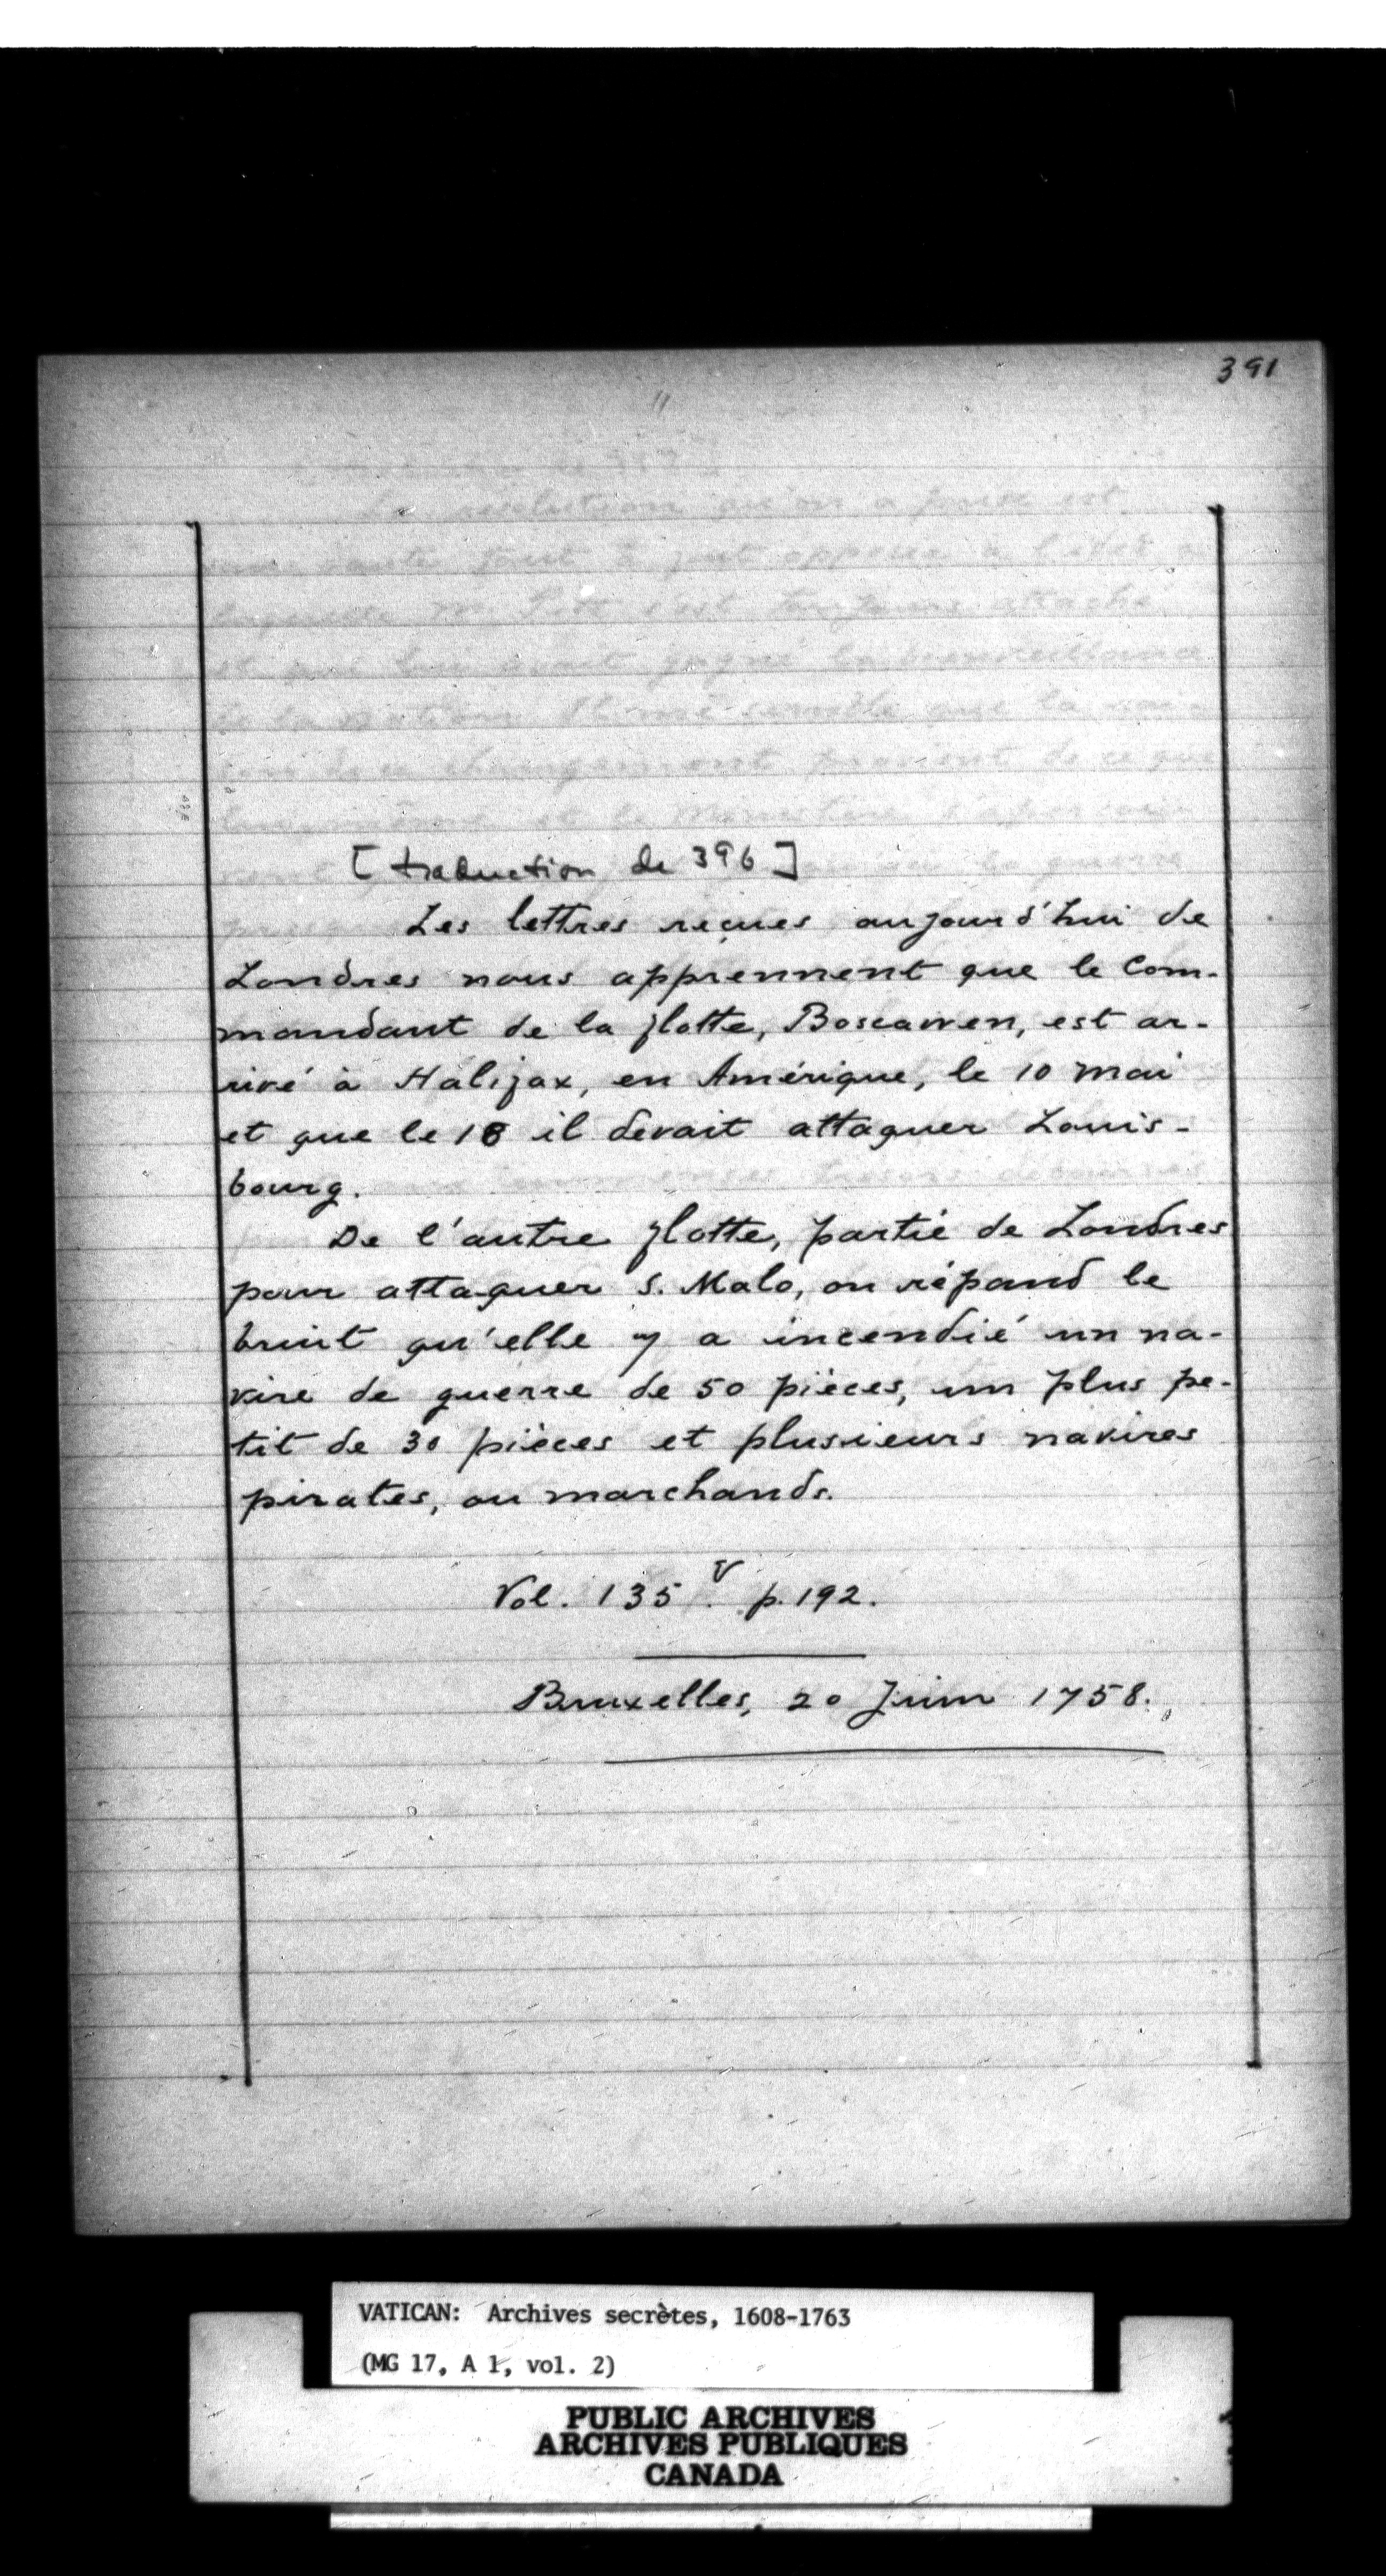 391
[traduction de 396]
Les lettres reçues aujourd'hui de
Londres nous apprennent que le Com-
mandant de la flotte, Boscawen, est ar-
rivé à Halifax, en Amérique, le 10 mai
et que le 18 il devait attaquer Louis-
bourg.
De l'autre flotte, partie de Londres
pour attaquer S. Malo, on répand le
bruit qu'elle y a incendié un na-
vire de guerre de 50 pièces, un plus pe-
tit de 30 pièces et plusieurs navires
pirates, ou marchands.
Vol. 135 v. p. 192.
Bruxelles, 20 Juin 1758.
VATICAN: Archives secrètes, 1608-1763
(MG 17, A 1, vol. 2)
PUBLIC ARCHIVES
ARCHIVES PUBLIQUES
CANADA